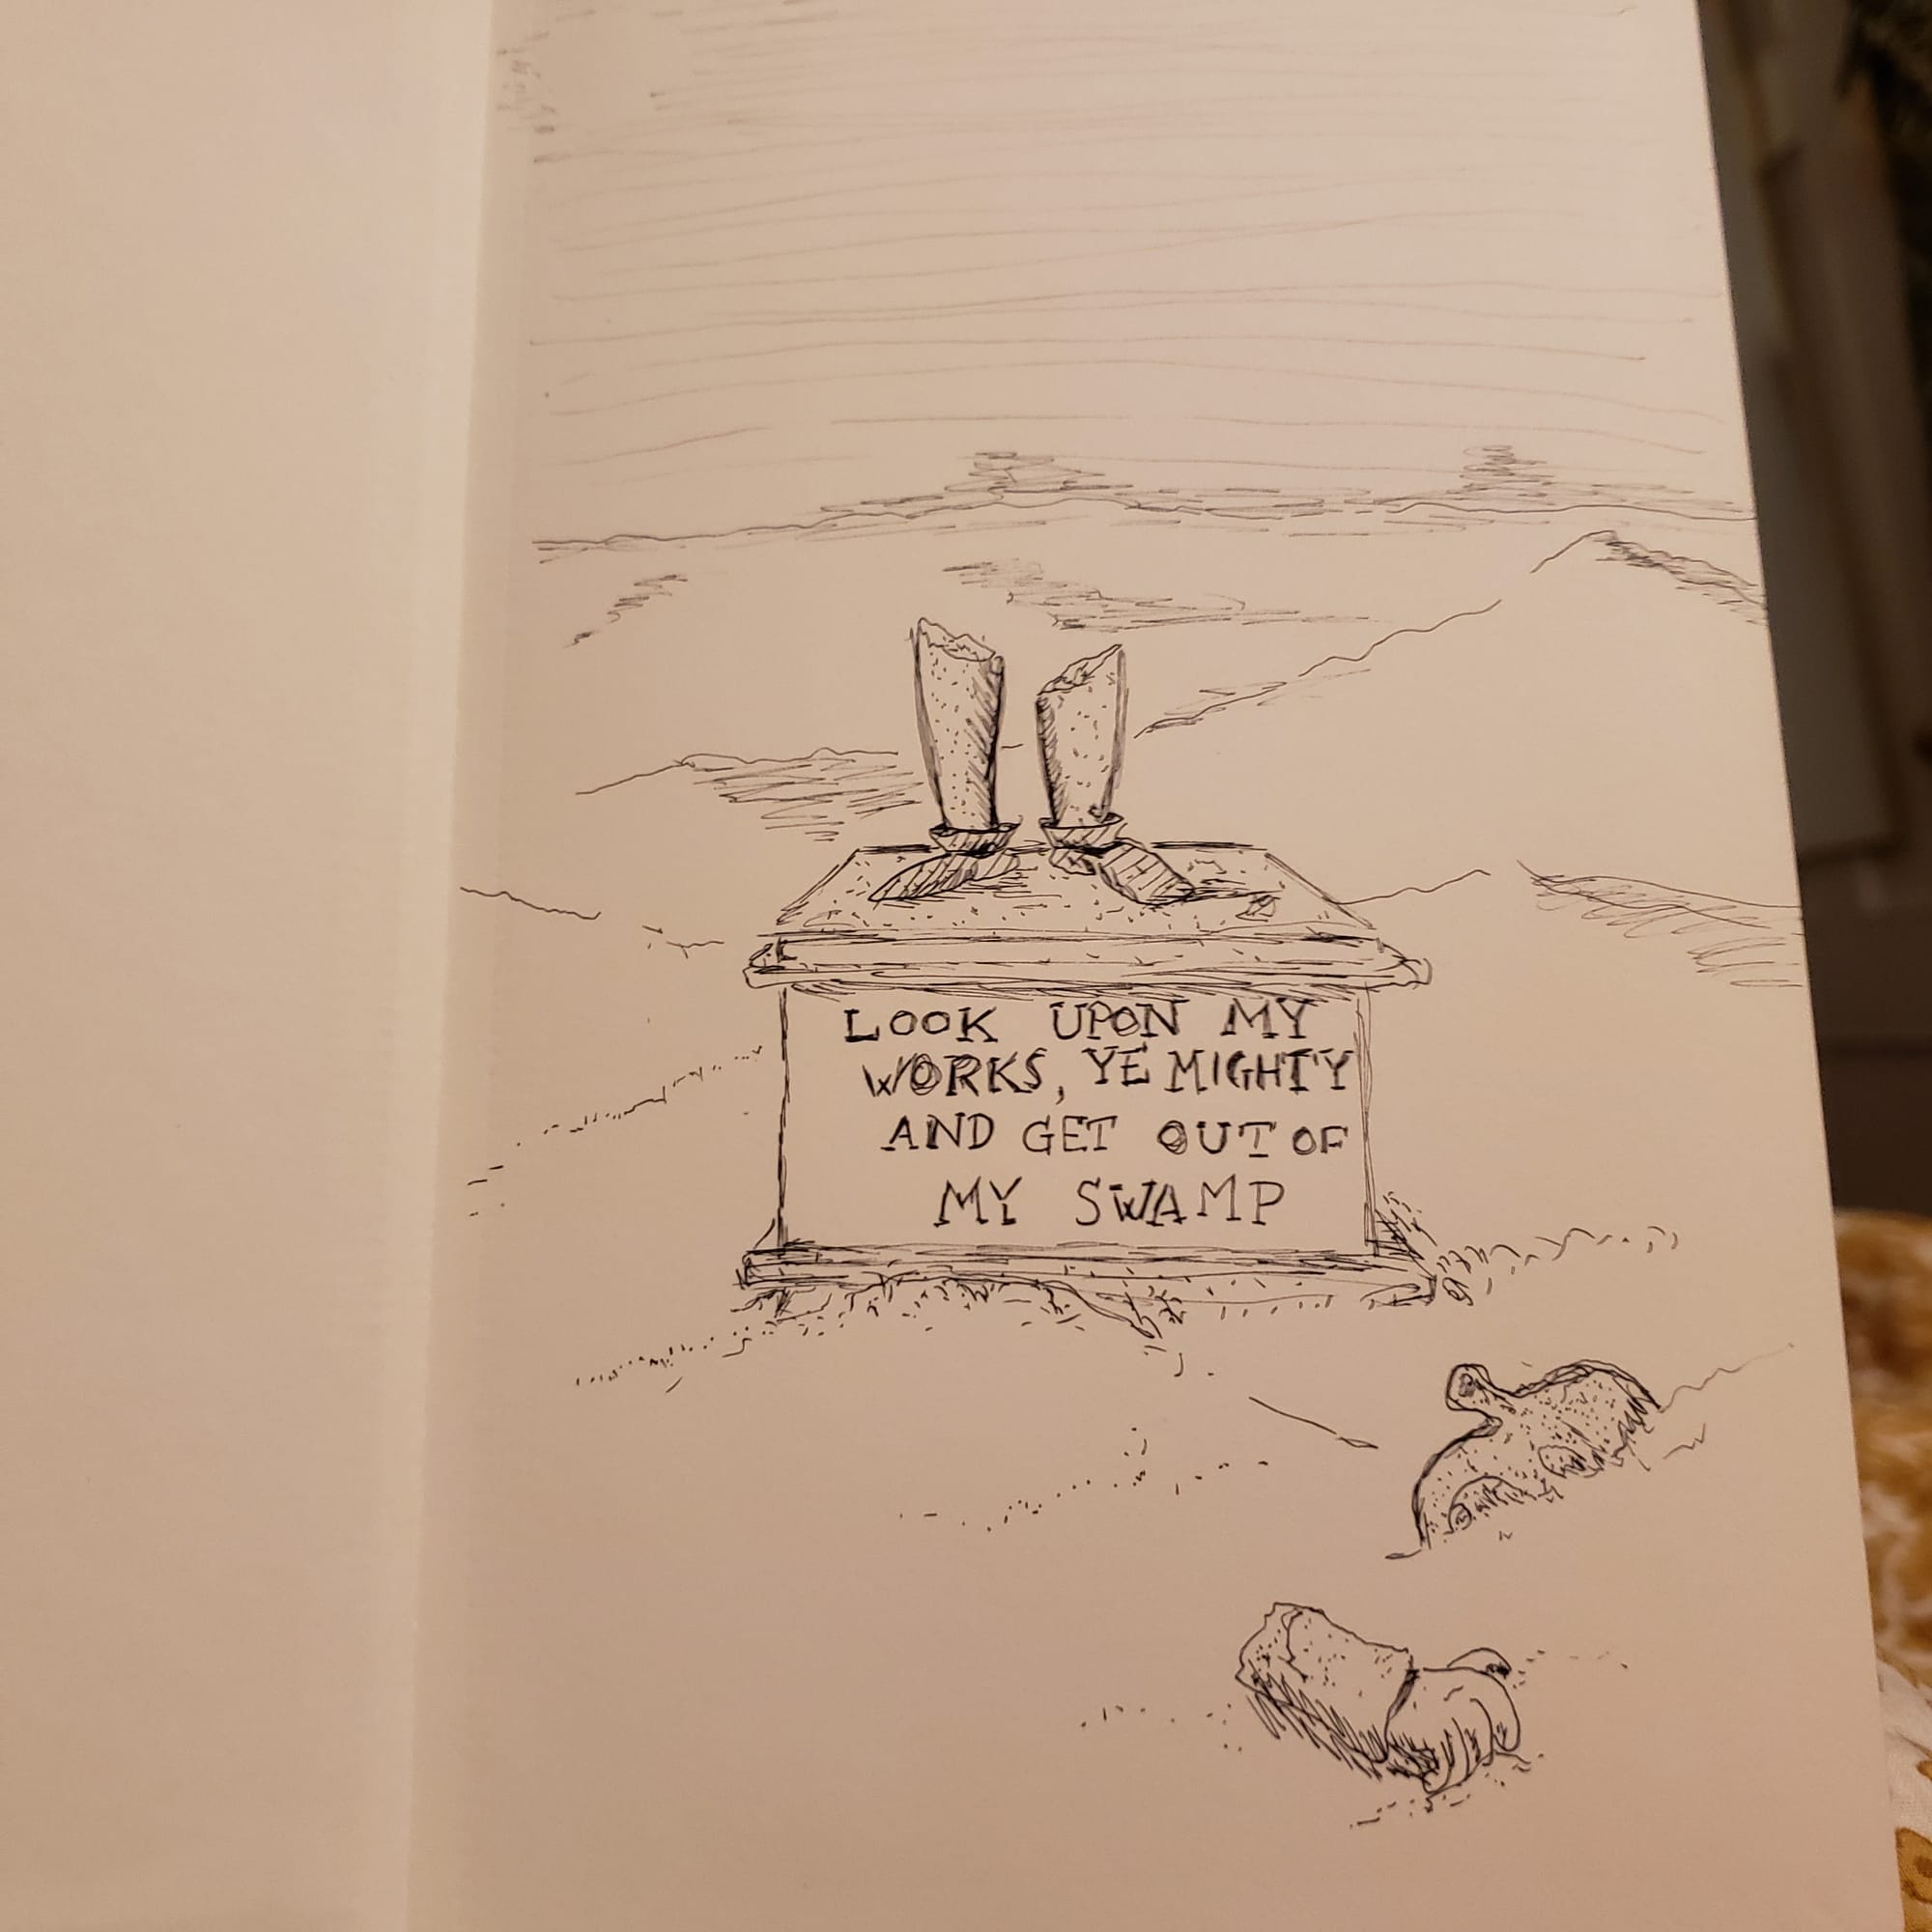 LOOK UPON MY
WORKS, YE MIGHTY
AND GET OUT OF
MY SWAMP